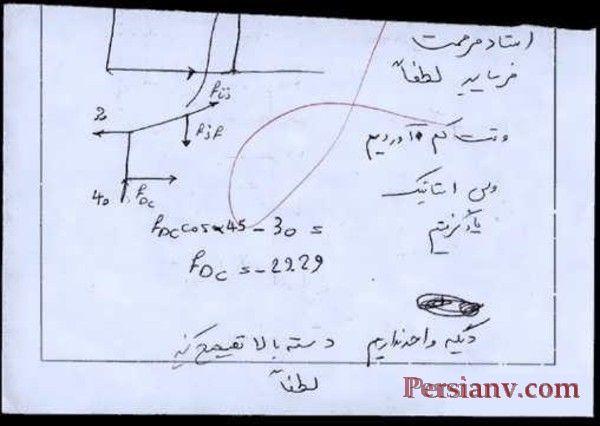 استاد مرحمت
فرمایید لطفاً
وقت کم آوردیم
ولی استاتیک
یاد گرفتیم
2
40
F_DC
F_DC cos 45 - 30 =
F_DC = -29.29
دیگه واحد نداریم دسته بالا تصحیح کنید
لطفاً
Persianv.com